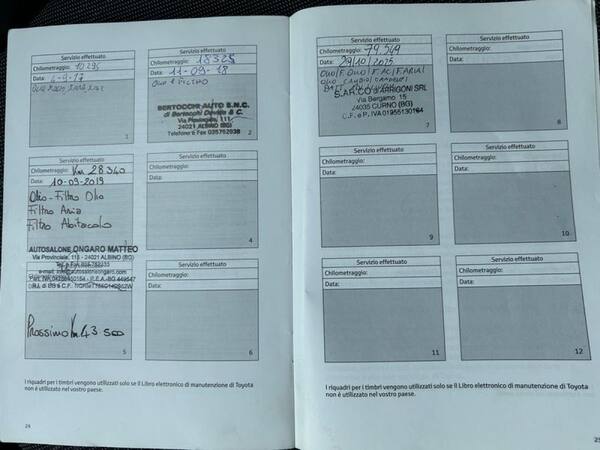 Servizio effettuato
Chilometraggio: 10295
Data: 6-9-17
1
Servizio effettuato
Chilometraggio: 18325
Data: 11-09-18
OLIO E FILTRO
BERTOCCHI AUTO S.N.C.
di Bertocchi Davide & C.
Via Provinciale, 111
24021 ALBINO (BG)
Telefono e Fax 035752938
2
Servizio effettuato
Chilometraggio: Km 28340
Data: 10-09-2019
Olio-Filtro Olio
Filtro Aria
Filtro Abitacolo
Servizio effettuato
Chilometraggio:
Data:
4
AUTOSALONE ONGARO MATTEO
Via Provinciale, 116 - 24021 ALBINO (BG)
Servizio effettuato
Prossimo Km 43 500
5
Servizio effettuato
Chilometraggio:
Data:
6
I riquadri per i timbri vengono utilizzati solo se il Libro elettronico di manutenzione di Toyota
non è utilizzato nel vostro paese.
24
Servizio effettuato
Chilometraggio: 79.549
Data: 29/10/2025
OLIO/F.OLIO/F.AC/F.ARIA/
S.AR.CO D'ARRIGONI SRL
Via Bergamo 15
24035 CURNO (BG)
C.F. e P. IVA 01955130164
7
Servizio effettuato
Chilometraggio:
Data:
8
Servizio effettuato
Chilometraggio:
Data:
9
Servizio effettuato
Chilometraggio:
Data:
10
Servizio effettuato
Chilometraggio:
Data:
11
Servizio effettuato
Chilometraggio:
Data:
12
I riquadri per i timbri vengono utilizzati solo se il Libro elettronico di manutenzione di Toyota
non è utilizzato nel vostro paese.
25